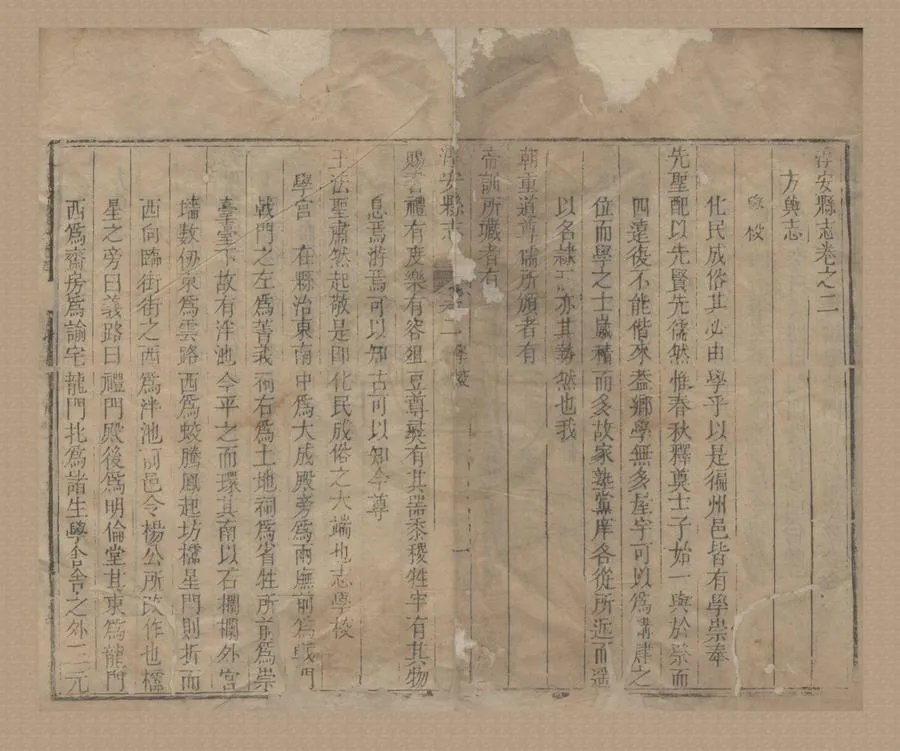 淳安縣志卷之二
方輿志
學校
化民成俗其必由學乎以是徧州邑皆有學崇奉
先聖配以先賢先儒然惟春秋釋奠士子始一與於祭而
四遠後不能偕來蓋鄉學無多屋宇可以為講肄之
位而學之士歲積而多故家塾黨庠各從所近而遥
以名隷亦其勢然也我
朝重道尊儒所頒者有
帝訓所職者有
淳安縣志 卷之二 學校 一
賜書禮有度樂有容俎豆尊彝有其器黍稷牲牢有其物
息焉游焉可以知古可以知今尊
王法聖肅然起敬是即化民成俗之大端也志學校
學宮 在縣治東南中為大成殿旁為兩廡前為戟門
戟門之左為菁莪祠右為土地祠為省牲所前為崇
臺臺下故有泮池今平之而環其南以石欄欄外宮
墻數仞東為雲路西為蛟騰鳳起坊櫺星門則折而
西向臨街街之西為泮池前邑令楊公所改作也櫺
星之旁曰義路曰禮門殿後為明倫堂其東為龍門
西為齋房為諭宅龍門北為諸生學舍舍之外三元